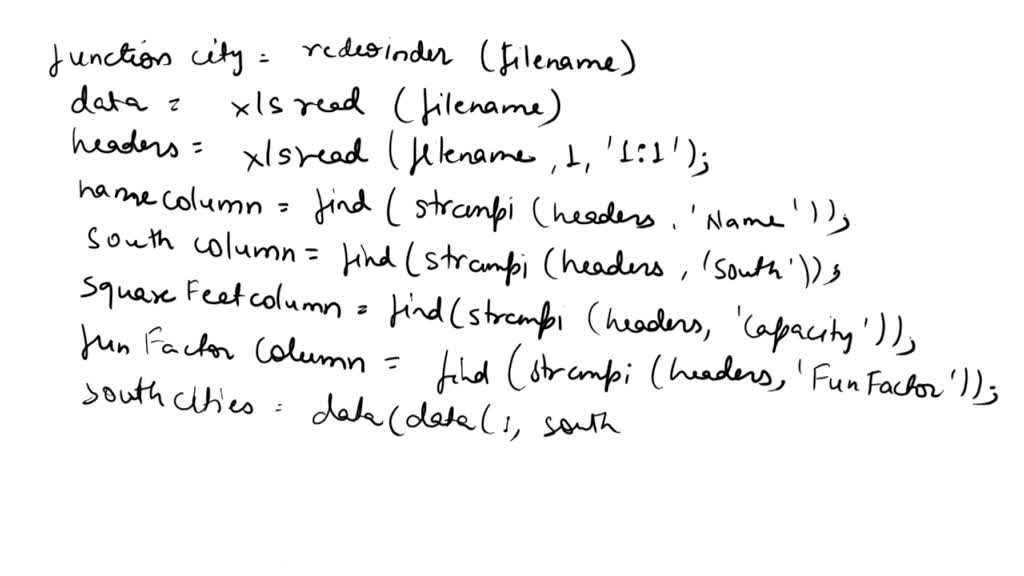 function city = redesinder (filename)
data = xlsread (filename)
headers = xlsread (filename, 1, '1:1');
namecolumn = find ( strcmpi (headers, 'Name'));
south column = find (strcmpi (headers, 'south'));
square Feetcolumn = find(strcmpi (headers, 'Capacity'));
fun Factor Column = find (strcmpi (headers, 'FunFactor'));
south cities = data(data(:, south